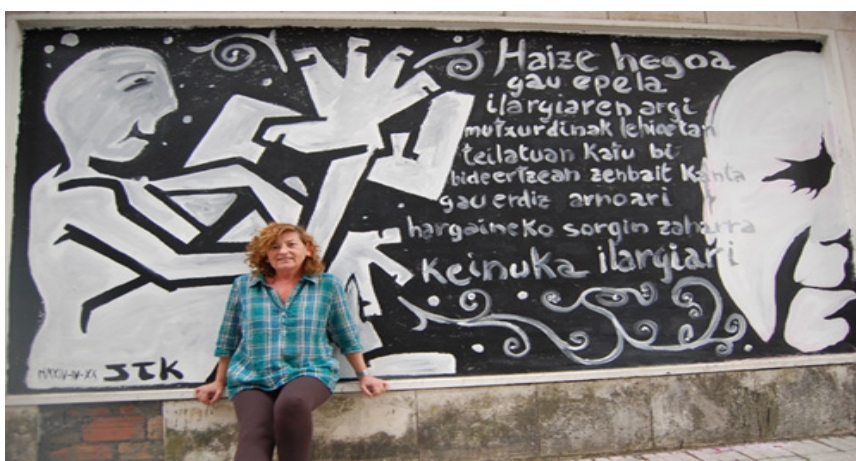 Haize hegoa
gau epela
ilargiaren argi
mutxurdinak lehioetan
teilatuan Katu bi
bide ertzean zenbait Kanta
gau erdiz arnoari
hargaineko sorgin zaharra
Keinuka ilargiari
JTK